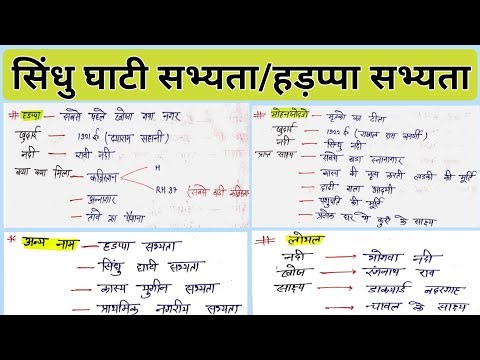 सिंधु घाटी सभ्यता/हड़प्पा सभ्यता
# हडप्पा — सबसे पहले खोजा गया नगर
खुदाई — 1921 ई० (दयाराम साहनी)
नदी — रावी नदी
क्या क्या मिला — कब्रिस्तान → H
→ RH 37 (सबसे बड़ी
— अन्नागार
— तांबे का पैमाना
# मोहनजोदड़ो — मृतकों का टीला
खुदाई — 1922 ई० (राखाल दास बनर्जी)
नदी — सिंधु नदी
साक्ष्य — सबसे बड़ा स्नानागार
— कास्य की नृत्य करती लडकी की मूर्ति
— दाढी वाला आदमी
— पशुपति की मूर्ति
— प्रत्येक घर में कुएँ के साक्ष्य
* अन्य नाम — हडप्पा सभ्यता
— सिंधु घाटी सभ्यता
— कास्य युगीन सभ्यता
— प्राथमिक नगरीय सभ्यता
# लोथल
नदी → भोगवा नदी
खोज → रंगनाथ राव
साक्ष्य → डाकयार्ड बंदरगाह
→ चावल के साक्ष्य